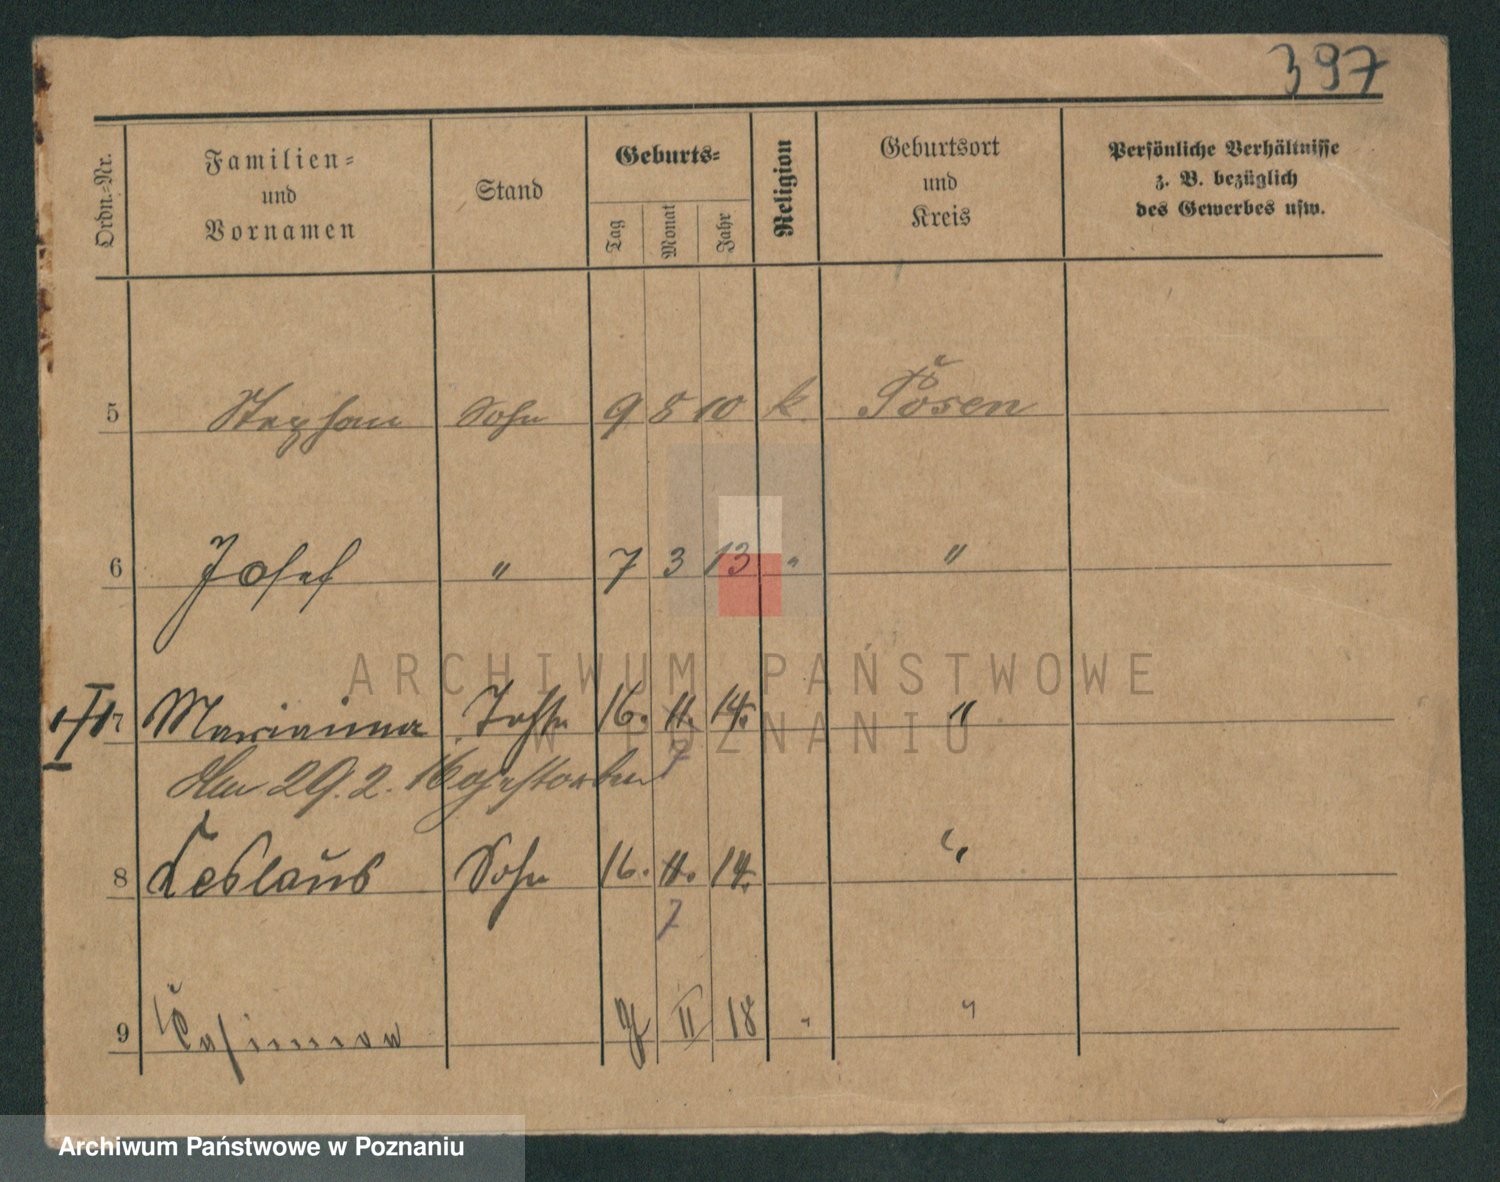 397
Ordn.-Nr.
Familien- und Vornamen
Stand
Geburts-
Tag Monat Jahr
Religion
Geburtsort und Kreis
Persönliche Verhältnisse z. B. bezüglich des Gewerbes usw.
5 Stephan Sohn 9 8 10 k. Posen
6 Josef " 7 3 13 " "
7 Marianna Tochter 16. 11. 14. "
7
Am 29.2.16 gestorben
8 Ceslaus Sohn 16. 11. 14. "
7
9 II 18 " "
ARCHIWUM PAŃSTWOWE
W POZNANIU
Archiwum Państwowe w Poznaniu